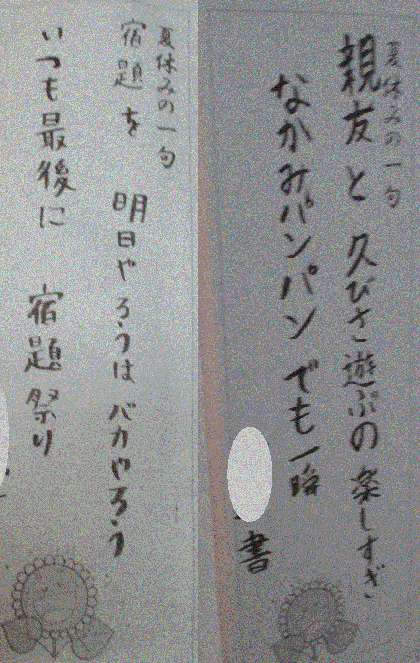 夏休みの一句
親友と 久びさ遊ぶの 楽しすぎ
なかみパンパン でも一瞬
書
夏休みの一句
宿題を 明日やろうは バカやろう
いつも最後に 宿題祭り